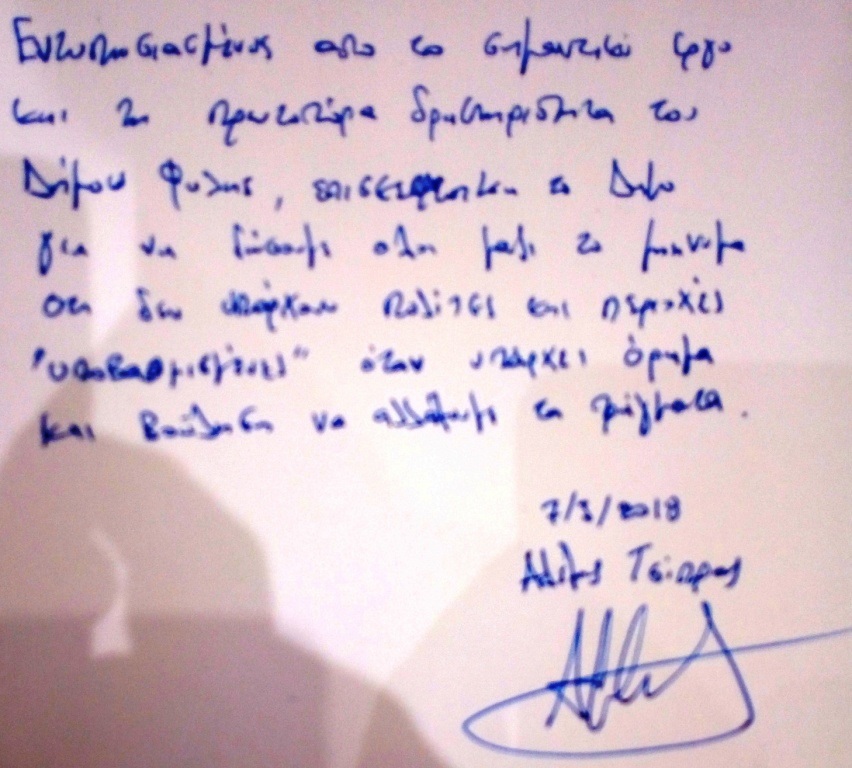 Εντυπωσιασμένος απο το σημαντικό έργο
και τη πρωτοπόρα δραστηριότητα του
Δήμου Φυλής, επισκέφτηκα το Δήμο
για να δώσουμε όλοι μαζι το μηνυμα
οτι δεν υπάρχουν πολίτες και περιοχές
"υποβαθμισμένες" όταν υπάρχει όραμα
και βούληση να αλλάξουμε τα πράγματα.
7/3/2018
Αλέξης Τσίπρας